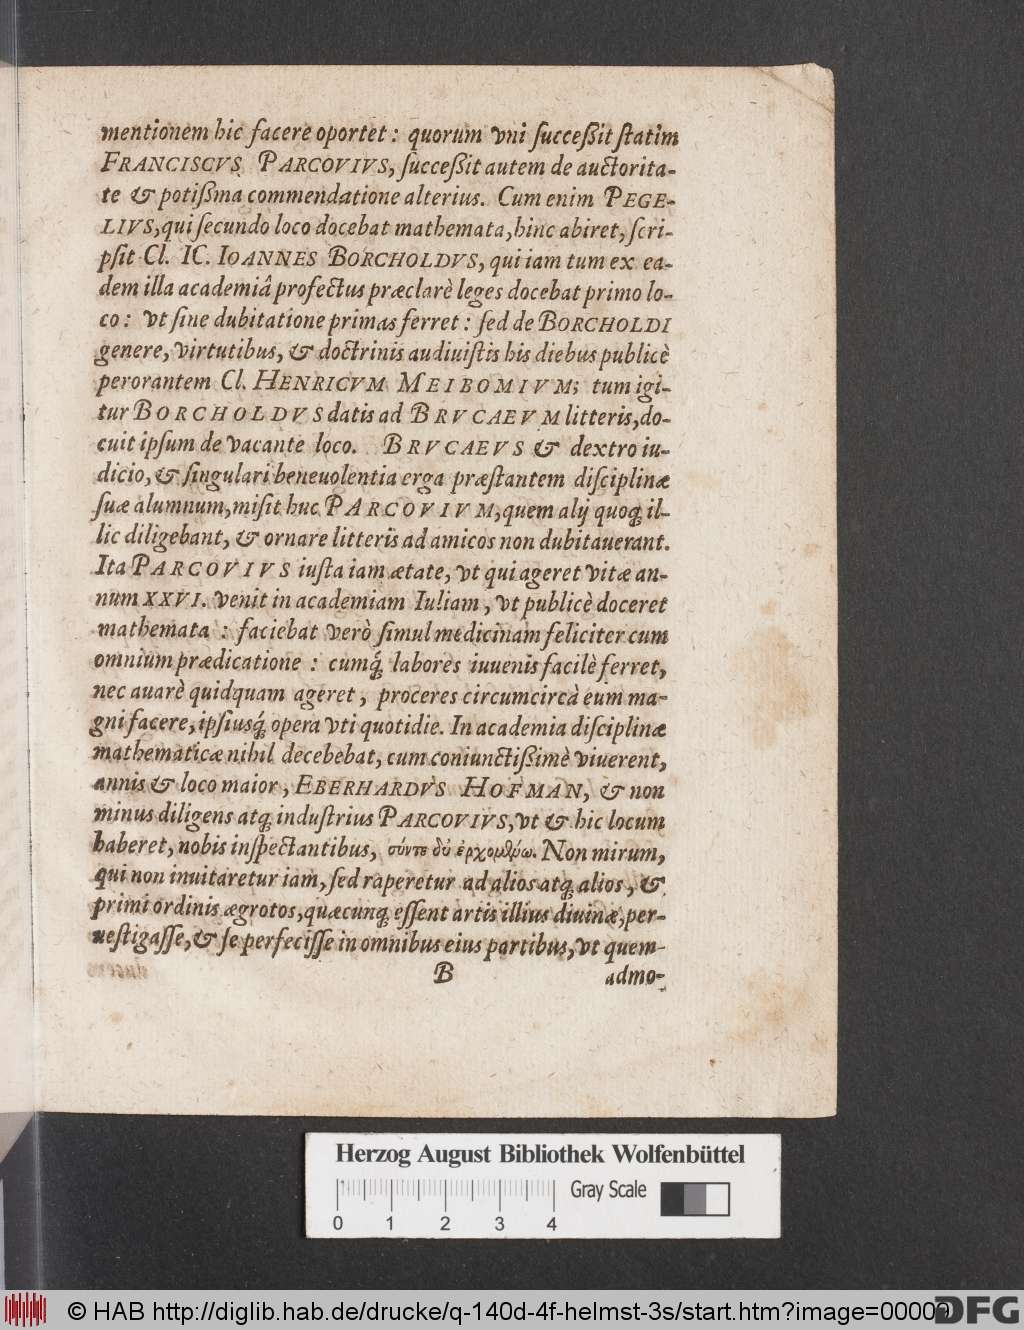 mentionem hic facere oportet: quorum vni succeßit statim
FRANCISCVS PARCOVIVS, succeßit autem de auctorita-
te & potißma commendatione alterius. Cum enim PEGE-
LIVS, qui secundo loco docebat mathemata, hinc abiret, scri-
psit Cl. IC. IOANNES BORCHOLDVS, qui iam tum ex ea-
dem illa academiâ profectus præclarè leges docebat primo lo-
co: vt sine dubitatione primas ferret: sed de BORCHOLDI
genere, virtutibus, & doctrinis audiuistis his diebus publicè
perorantem Cl. HENRICVM MEIBOMIVM; tum igi-
tur BORCHOLDVS datis ad BRVCAEVM litteris, do-
cuit ipsum de vacante loco. BRVCAEVS & dextro iu-
dicio, & singulari beneuolentia erga præstantem disciplinæ
suæ alumnum, misit huc PARCOVIVM, quem alij quoq; il-
lic diligebant, & ornare litteris ad amicos non dubitauerant.
Ita PARCOVIVS iusta iam ætate, vt qui ageret vitæ an-
num XXVI. venit in academiam Iuliam, vt publicè doceret
mathemata: faciebat verò simul medicinam feliciter cum
omnium prædicatione: cumq́; labores iuuenis facilè ferret,
nec auarè quidquam ageret, proceres circumcircà eum ma-
gni facere, ipsiusq́; opera vti quotidie. In academia disciplinæ
mathematicæ nihil decebebat, cum coniunctißimè viuerent,
annis & loco maior, EBERHARDVS HOFMAN, & non
minus diligens atq; industrius PARCOVIVS, vt & hic locum
haberet, nobis inspectantibus, σύντε δύ ἐρχομένω. Non mirum,
qui non inuitaretur iam, sed raperetur ad alios atq; alios, &
primi ordinis ægrotos, quæcunq; essent artis illius diuinæ, per-
uestigasse, & se perfecisse in omnibus eius partibus, vt quem-
B admo-
Herzog August Bibliothek Wolfenbüttel
Gray Scale
0 1 2 3 4
© HAB http://diglib.hab.de/drucke/q-140d-4f-helmst-3s/start.htm?image=00009
DFG